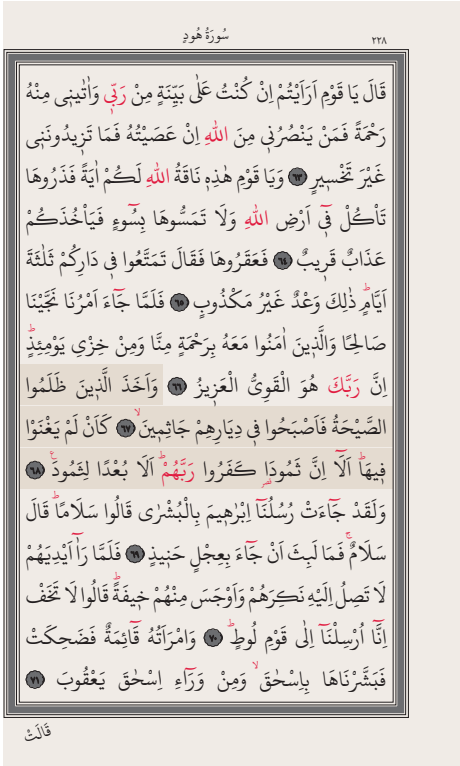 ٢٢٨ سُورَةُ هُودٍ
قَالَ يَا قَوْمِ اَرَاَيْتُمْ اِنْ كُنْتُ عَلٰى بَيِّنَةٍ مِنْ رَبّ۪ي وَاٰتٰين۪ي مِنْهُ
رَحْمَةً فَمَنْ يَنْصُرُن۪ي مِنَ اللّٰهِ اِنْ عَصَيْتُهُ فَمَا تَز۪يدُونَن۪ي
غَيْرَ تَخْس۪يرٍ ٦٣ وَيَا قَوْمِ هٰذِه۪ نَاقَةُ اللّٰهِ لَكُمْ اٰيَةً فَذَرُوهَا
تَاْكُلْ ف۪ٓي اَرْضِ اللّٰهِ وَلَا تَمَسُّوهَا بِسُٓوءٍ فَيَاْخُذَكُمْ
عَذَابٌ قَر۪يبٌ ٦٤ فَعَقَرُوهَا فَقَالَ تَمَتَّعُوا ف۪ي دَارِكُمْ ثَلٰثَةَ
اَيَّامٍۜ ذٰلِكَ وَعْدٌ غَيْرُ مَكْذُوبٍ ٦٥ فَلَمَّا جَٓاءَ اَمْرُنَا نَجَّيْنَا
صَالِحًا وَالَّذ۪ينَ اٰمَنُوا مَعَهُ بِرَحْمَةٍ مِنَّا وَمِنْ خِزْيِ يَوْمِئِذٍۜ
اِنَّ رَبَّكَ هُوَ الْقَوِيُّ الْعَز۪يزُ ٦٦ وَاَخَذَ الَّذ۪ينَ ظَلَمُوا
الصَّيْحَةُ فَاَصْبَحُوا ف۪ي دِيَارِهِمْ جَاثِم۪ينَۙ ٦٧ كَاَنْ لَمْ يَغْنَوْا
ف۪يهَاۜ اَلَٓا اِنَّ ثَمُودَا۬ كَفَرُوا رَبَّهُمْۜ اَلَا بُعْدًا لِثَمُودَ۟ ٦٨
وَلَقَدْ جَٓاءَتْ رُسُلُنَٓا اِبْرٰه۪يمَ بِالْبُشْرٰى قَالُوا سَلَامًاۜ قَالَ
سَلَامٌۚ فَمَا لَبِثَ اَنْ جَٓاءَ بِعِجْلٍ حَن۪يذٍ ٦٩ فَلَمَّا رَآٰ اَيْدِيَهُمْ
لَا تَصِلُ اِلَيْهِ نَكِرَهُمْ وَاَوْجَسَ مِنْهُمْ خ۪يفَةًۜ قَالُوا لَا تَخَفْ
اِنَّٓا اُرْسِلْنَٓا اِلٰى قَوْمِ لُوطٍۜ ٧٠ وَامْرَاَتُهُ قَٓائِمَةٌ فَضَحِكَتْ
فَبَشَّرْنَاهَا بِاِسْحٰقَۙ وَمِنْ وَرَٓاءِ اِسْحٰقَ يَعْقُوبَ ٧١
قَالَتْ